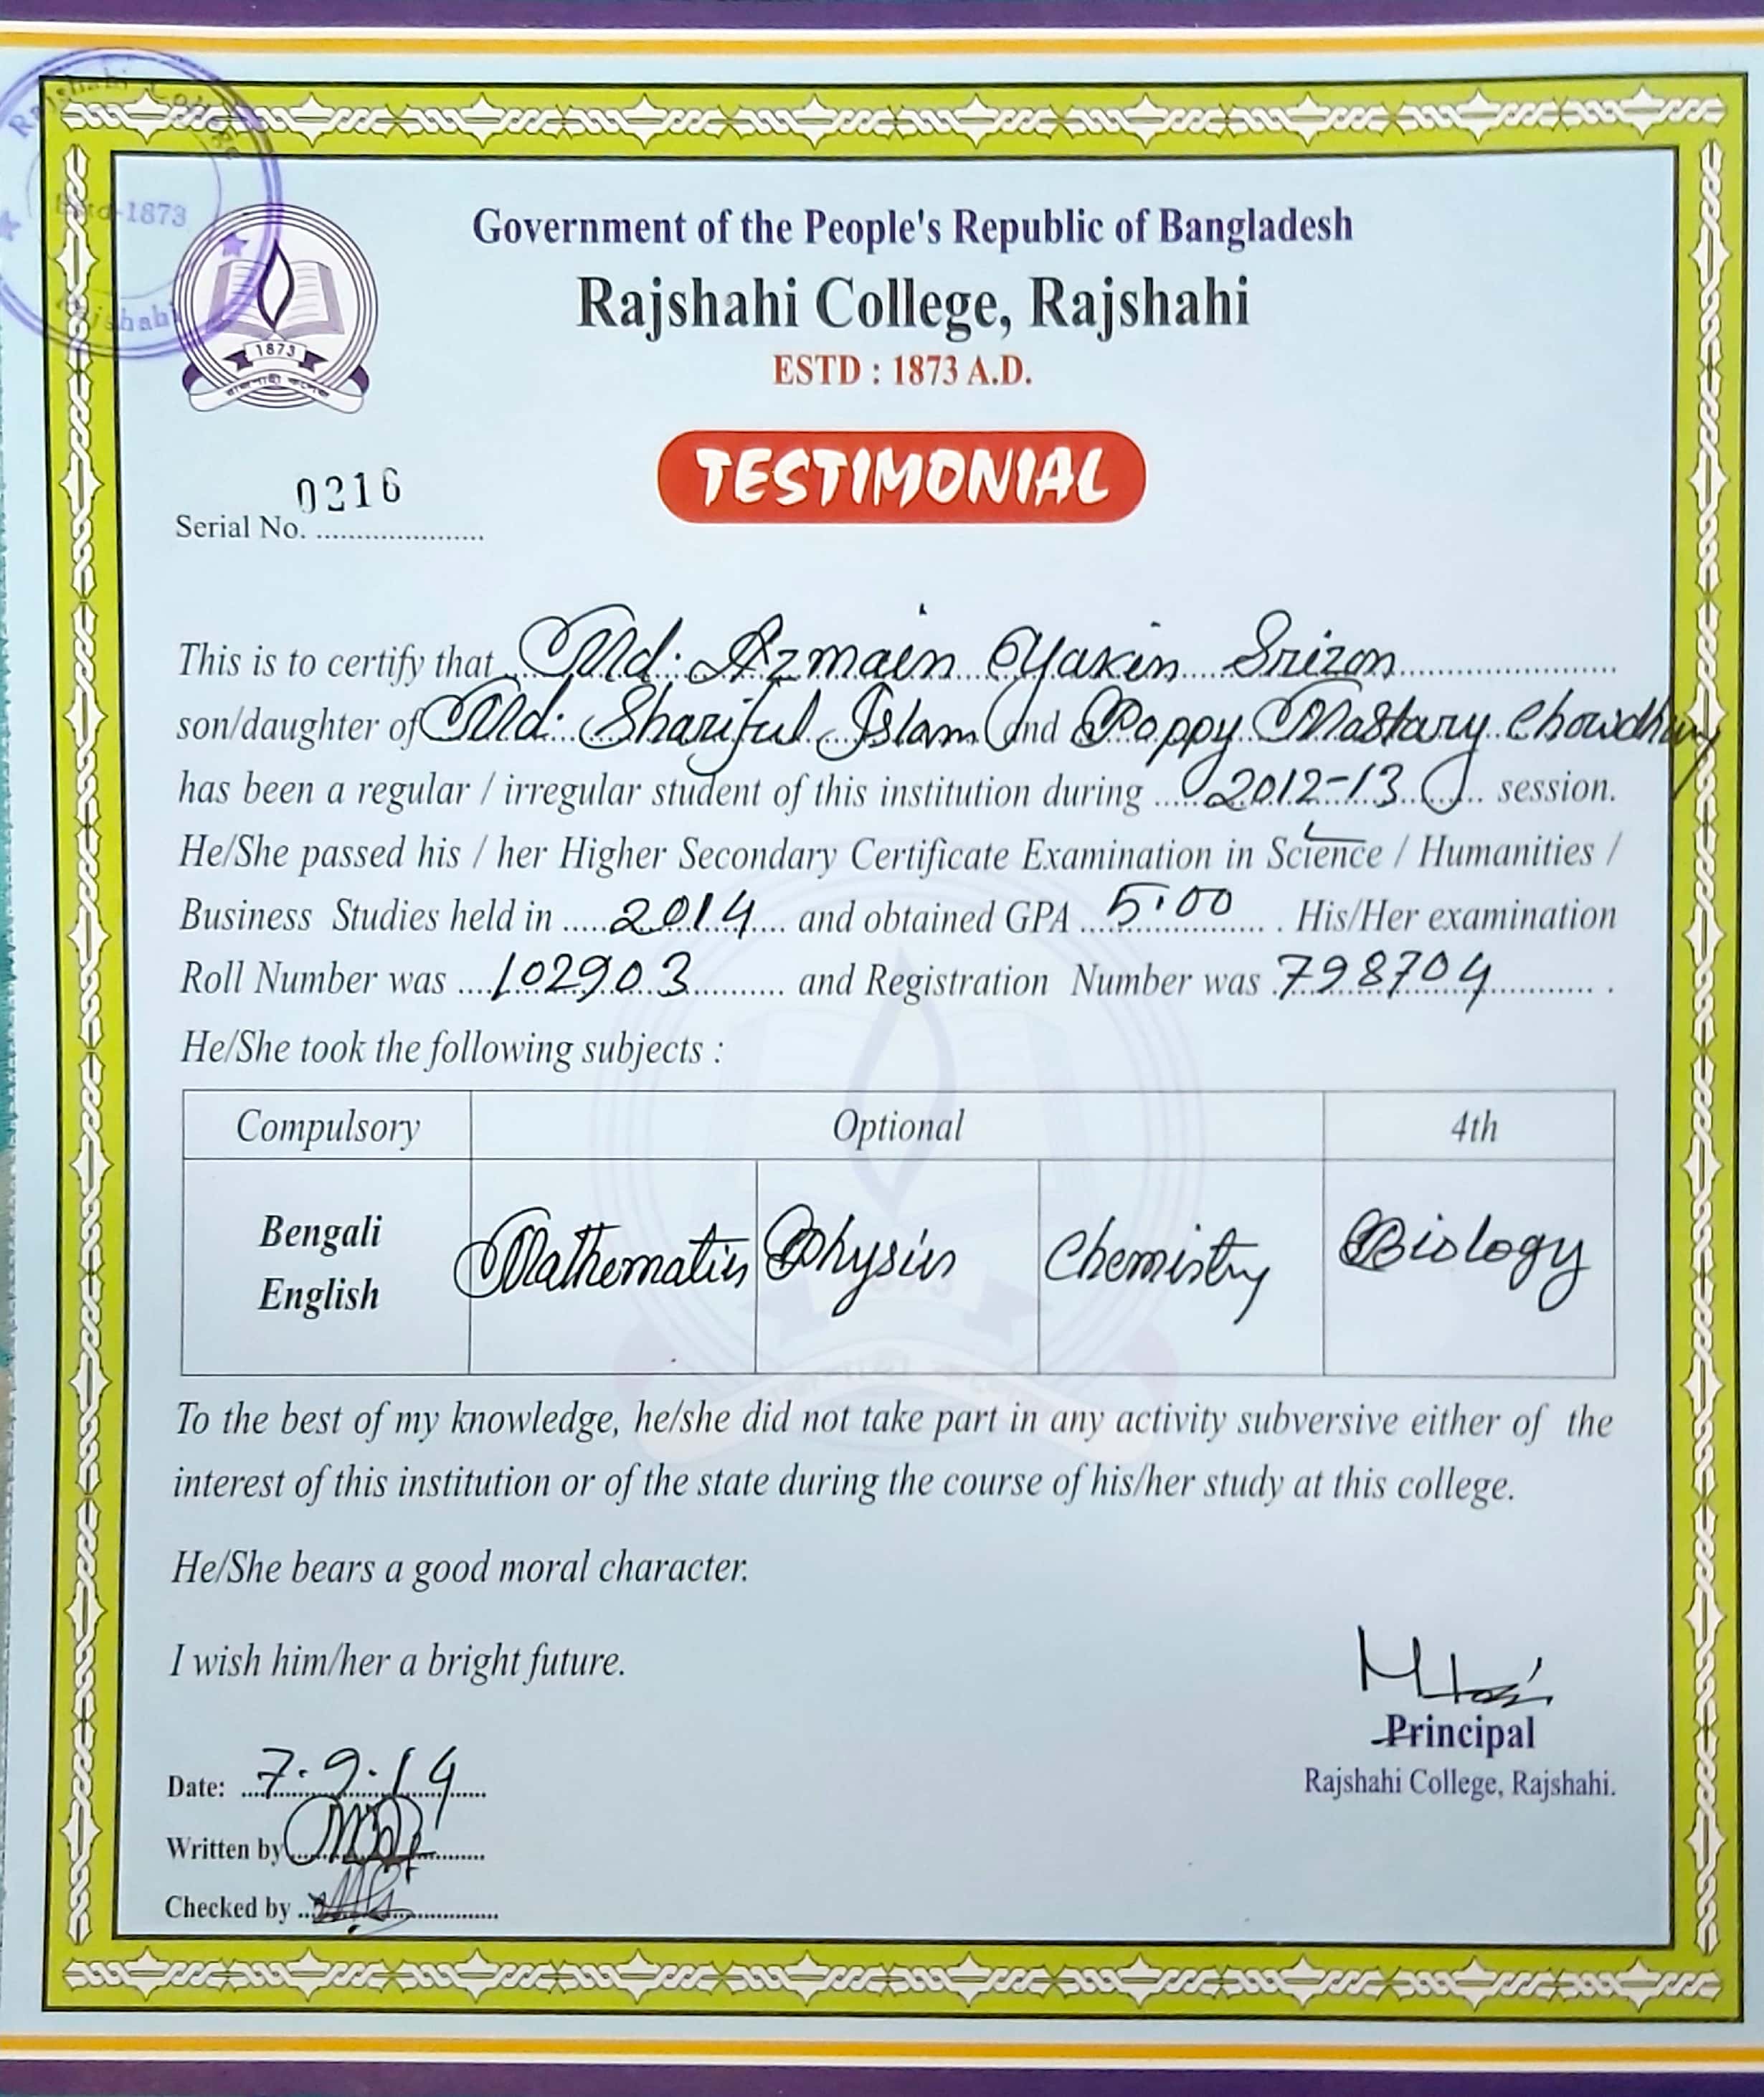 Rajshahi College
Estd-1873
Rajshahi
1873
রাজশাহী কলেজ
Government of the People's Republic of Bangladesh
Rajshahi College, Rajshahi
ESTD : 1873 A.D.
TESTIMONIAL
Serial No. 0216
This is to certify that Md. Azmain Yakin Srizon
son/daughter of Md. Shariful Islam and Pappy Mastary Chowdhury
has been a regular / irregular student of this institution during 2012-13 session.
He/She passed his / her Higher Secondary Certificate Examination in Science / Humanities /
Business Studies held in 2014 and obtained GPA 5.00. His/Her examination
Roll Number was 102903 and Registration Number was 798704.
He/She took the following subjects :
Compulsory Optional 4th
Bengali
English Mathematics Physics Chemistry Biology
To the best of my knowledge, he/she did not take part in any activity subversive either of the
interest of this institution or of the state during the course of his/her study at this college.
He/She bears a good moral character.
I wish him/her a bright future.
Principal
Rajshahi College, Rajshahi.
Date: 7.9.14
Written by
Checked by